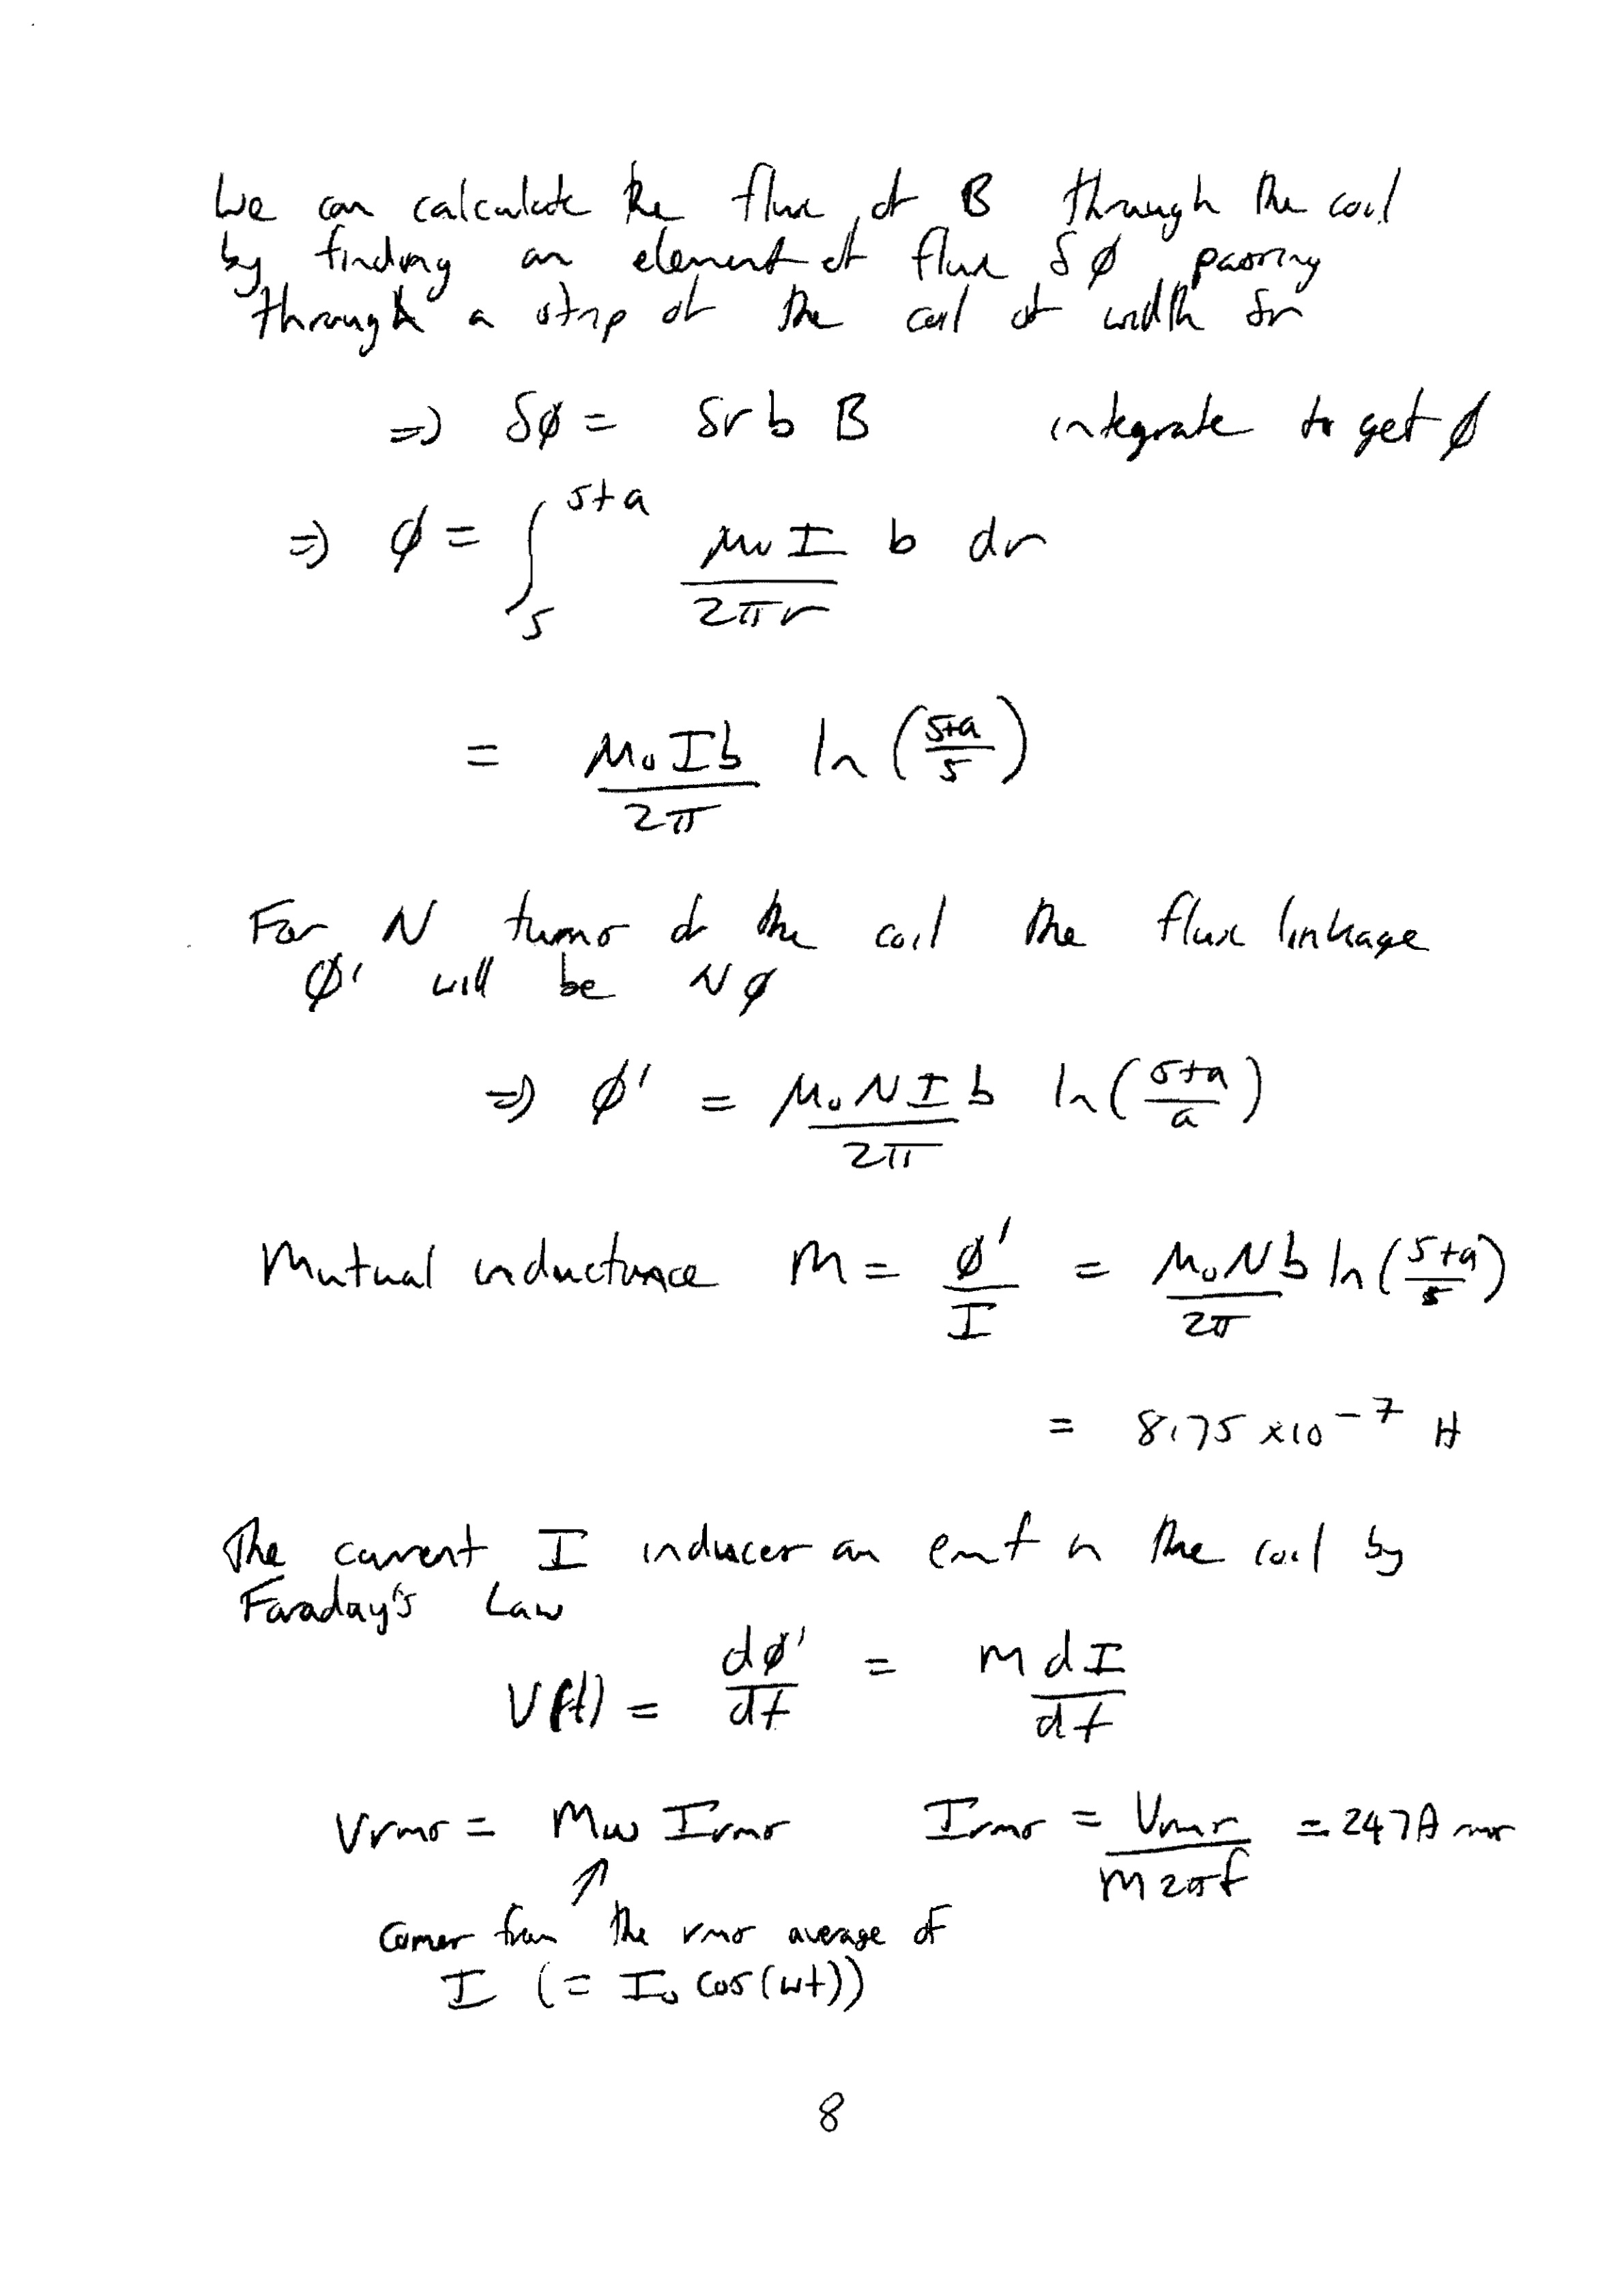 We can calculate the flux of B through the coil
by finding an element of flux δϕ passing
through a strip of the coil of width δr
⇒ δϕ = δr b B integrate to get ϕ
⇒ ϕ = ∫_s^{s+a} μ₀I/2πr b dr
= μ₀Ib/2π ln(s+a/s)
For N turns of the coil the flux linkage
ϕ' will be Nϕ
⇒ ϕ' = μ₀NIb/2π ln(s+a/a)
Mutual inductance M = ϕ'/I = μ₀Nb/2π ln(s+a/s)
= 8.75 ×10⁻⁷ H
The current I induces an emf in the coil by
Faraday's Law
V(t) = dϕ'/dt = M dI/dt
Vrms = Mω Irms Irms = Vrms/M2πf = 247A rms
↑
comes from the rms average of
I (= I₀ cos(ωt))
8